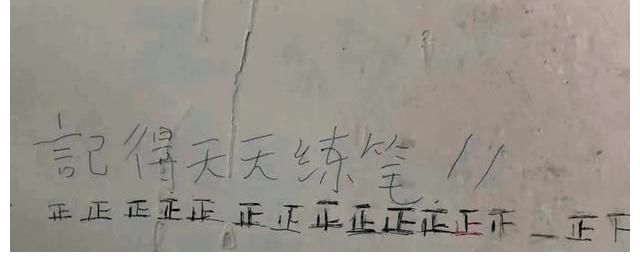 記得天天练笔!!
正正正正正正正正正正正正正一正下